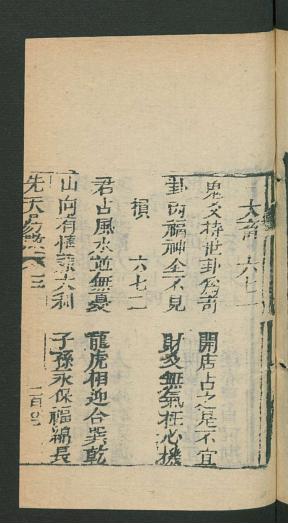 大畜 六七一
鬼爻持世卦為奇 開店占之是不宜
卦內福神全不見 財爻無氣枉心機
損 六七二
君占風水並無憂 龍虎相迎合巽乾
山向有情兼大利 子孫永保福綿長
先天易數 八三